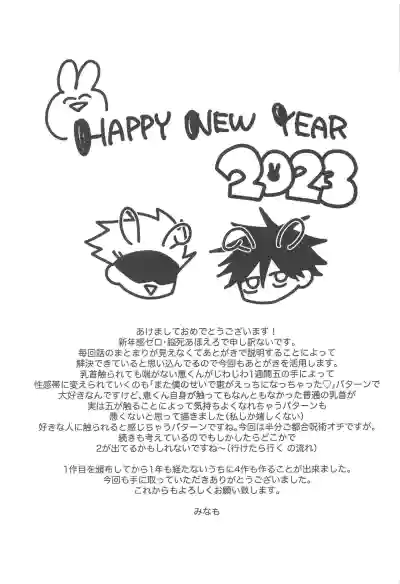 HAPPY NEW YEAR
2023
あけましておめでとうございます！
新年感ゼロ・脳死あほえろで申し訳ないです。
毎回話のまとまりが見えなくてあとがきで説明することによって
解決できていると思い込んでるので今回もあとがきを活用します。
乳首触られても喘がない恵くんがじわじわ1週間五の手によって
性感帯に変えられていくのも「また僕のせいで恵がえっちになっちゃった♡」パターンで
大好きなんですけど、恵くん自身が触ってもなんともなかった普通の乳首が
実は五が触ることによって気持ちよくなれちゃうパターンも
悪くないと思って描きました（私しか嬉しくない）
好きな人に触られると感じちゃうパターンですね。今回は半分ご都合呪術オチですが。
続きも考えているのでもしかしたらどこかで
2が出てるかもしれないですね〜（行けたら行く の流れ）
1作目を頒布してから1年も経たないうちに4作も作ることが出来ました。
今回も手に取っていただきありがとうございました。
これからもよろしくお願い致します。
みなも